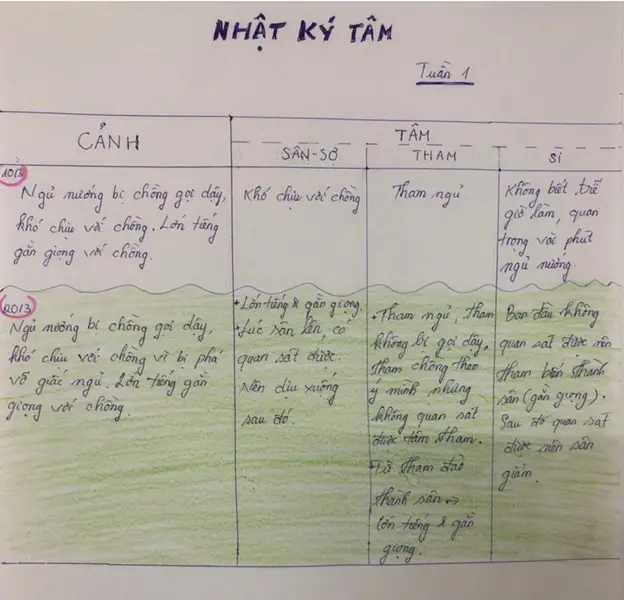 NHẬT KÝ TÂM
Tuần 1
CẢNH
TÂM
SÂN-SỢ
THAM
SI
1013
Ngủ nướng bị chồng gọi dậy,
khó chịu với chồng. Lớn tiếng
gằn giọng với chồng.
Khó chịu với chồng
Tham ngủ
Không biết trễ
giờ làm, quan
trọng vài phút
ngủ nướng.
2013
Ngủ nướng bị chồng gọi dậy,
khó chịu với chồng vì bị phá
vỡ giấc ngủ. Lớn tiếng gằn
giọng với chồng.
+ Lớn tiếng & gằn giọng
+ Lúc sân lên, có
quan sát được.
Nên dịu xuống
sau đó.
. Tham ngủ, tham
không bị gọi dậy,
tham chồng theo
ý mình nhưng
không quan sát
được tâm tham.
+ Là tham đảo
thành sân ->
lớn tiếng & gằn
giọng.
Ban đầu không
quan sát được nên
tham biến thành
sân (gằn giọng).
Sau đó quan sát
được nên sân
giảm.